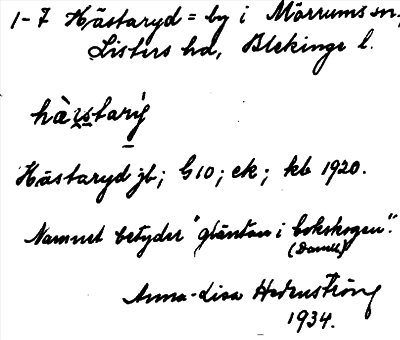 1-7 Hästaryd = by i Mörrums sn,
Listers hd, Blekinge l.
hästarỳ
Hästaryd jb; G10; ek; kb 1920.
Namnet betyder "gläntan i bokskogen".
(Danell)
Anna-Lisa Hedenström
1934.